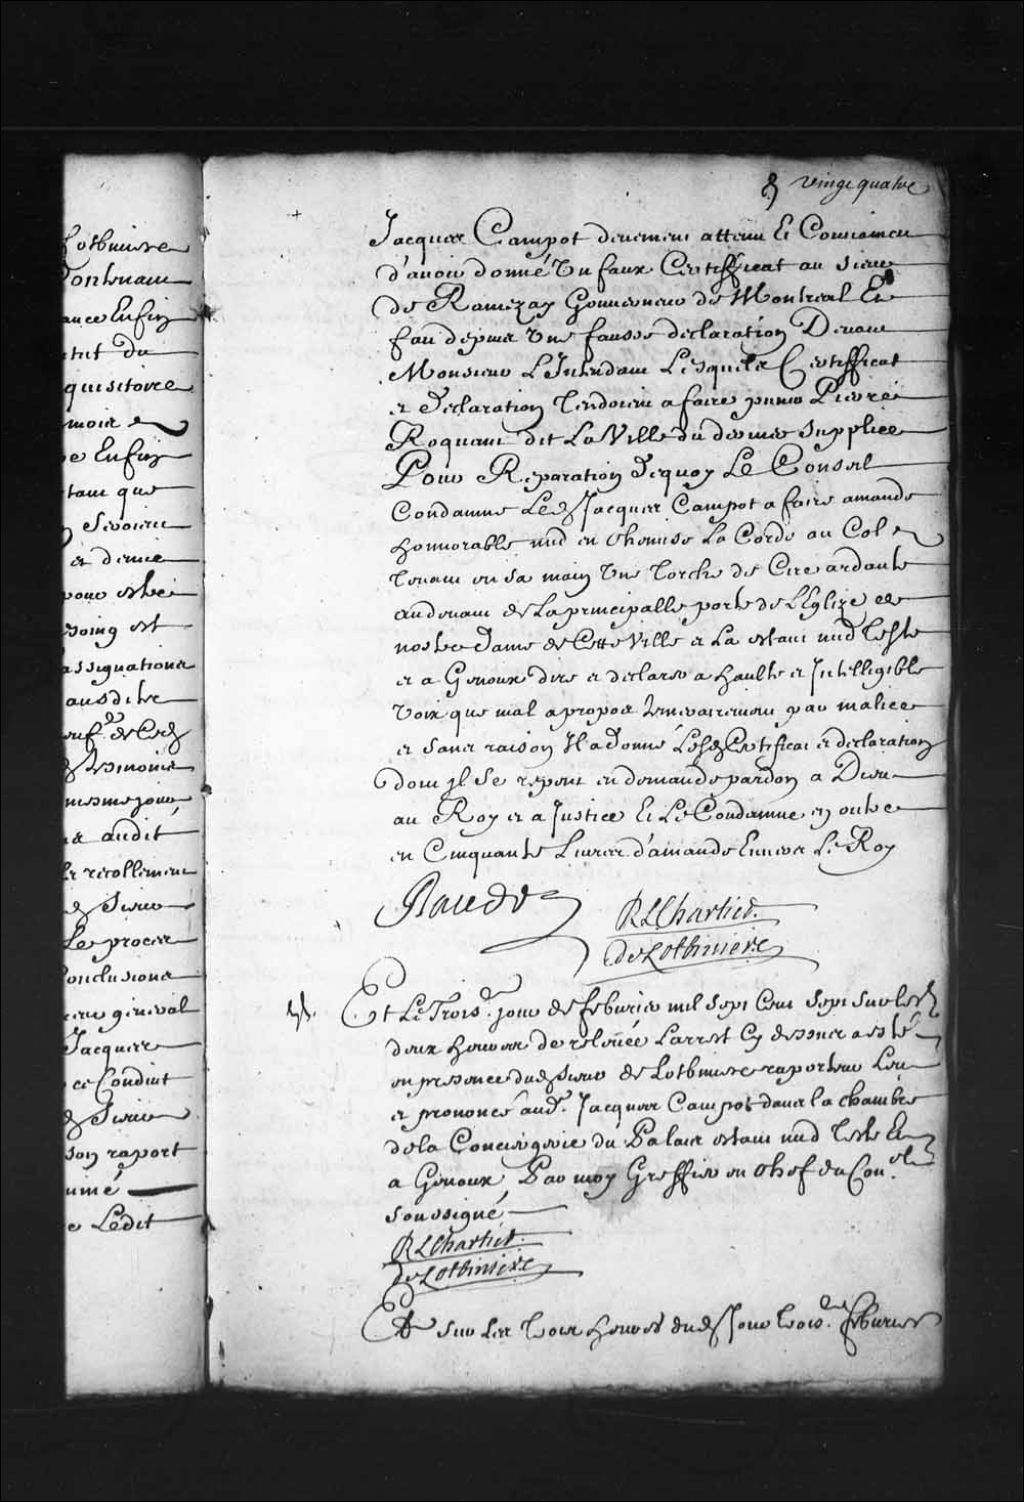 Lotbiniere
Contenant
ance Enfin
tut du
quisitoire
moire
e Enfin
tant que
Seroient
et demie
pour estre
soing est
assignations
ausdits
tesmoins
mesme jour
audit
le recollement
Sieur
Le procez
Conclusions
general
Jacques
ce Conduit
Sieur
son raport
umé
Ledit
vingt quatre
Jacques Campot deuement atteint Et Conuaincu
d'auoir donné Un faux Certifficat au sieur
de Ramezay Gouuerneur de Montreal Et
fait depuis Une fausse declaration Deuant
Monsieur L'Intendant Lesquels Certifficat
et Declaration Tendoient a faire punir Pierre
Roquant dit La Ville du dernier Supplice
Pour Reparation dequoy Le Conseil
Condamne Led Jacques Campot a faire amande
honnorable nud en Chemise La Corde au Col
Tenant en sa main Une Torche de Cire ardante
audeuant de La principalle porte de L'Eglize de
nostre Dame de Cette Ville et La estant nud Teste
et a Genoux dire et declarer a haulte et Intelligible
Voix que mal apropos Temerairement par malice
et sans raison Il a donné Lesd Certificat et declaration
dont jl Se repent en demande pardon a Dieu
au Roy et a Justice Et Le Condamne en outre
en Cinquante Liures d'amande Enuers Le Roy
Raudot
RLChartier
deLotbiniere
Et Le Trois.e jour de feburier mil Sept Cent Sept sur les
deux heures de releuée L'arrest Cy dessus a esté
en presence dud Sieur de Lotbiniere raporteur Leu
et prononcé aud. Jacques Campot dans la chambre
de la Conciergerie du Palais estant nud Teste Et
a Genoux Par moy Greffier en Chef du Con.el
Soussigné
RLChartier
deLotbiniere
Et sur Les Trois heures dud Jour trois.e feburier